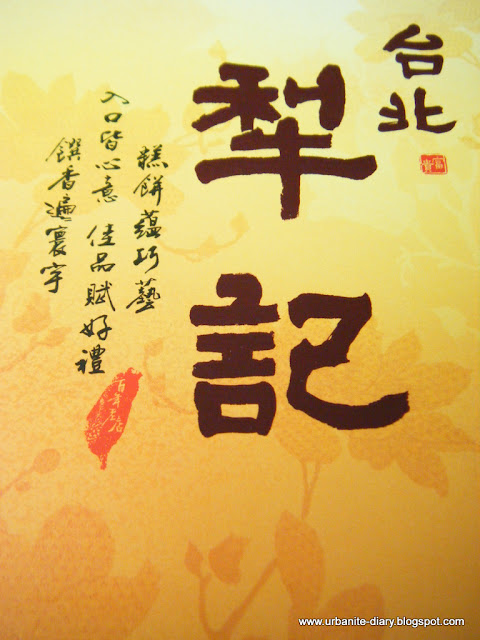 台北
犁記
富貴
糕餅蘊巧藝
入口皆心意 佳品賦好禮
饌香遍寰宇
百年老店
www.urbanite-diary.blogspot.com